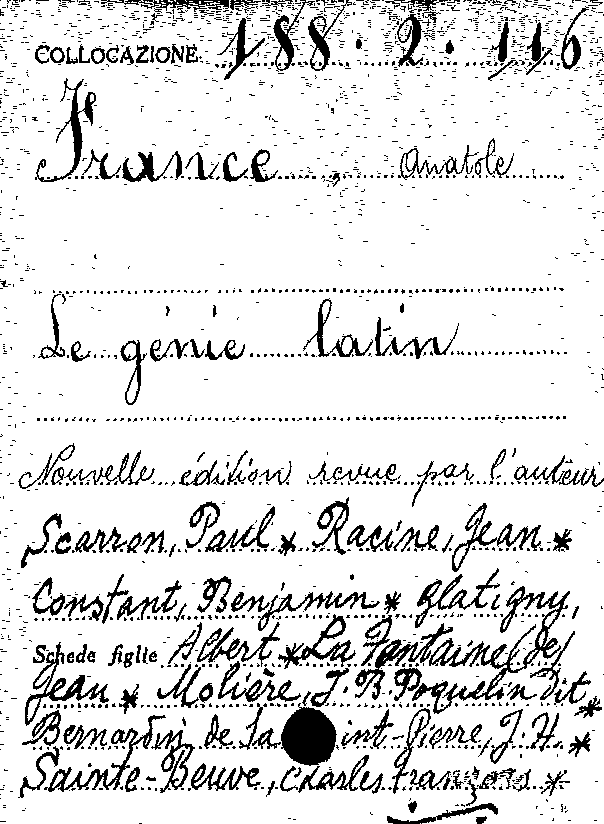 COLLOCAZIONE 188.2.116
France, Anatole
Le génie latin
Nouvelle édition revue par l'auteur
Scarron, Paul * Racine, Jean *
Constant, Benjamin * Glatigny,
Schede figlie Albert * La Fontaine (de)
Jean * Molière, J.B. Poquelin dit *
Bernardin de la int-Pierre, J.H. *
Sainte-Beuve, Charles François *